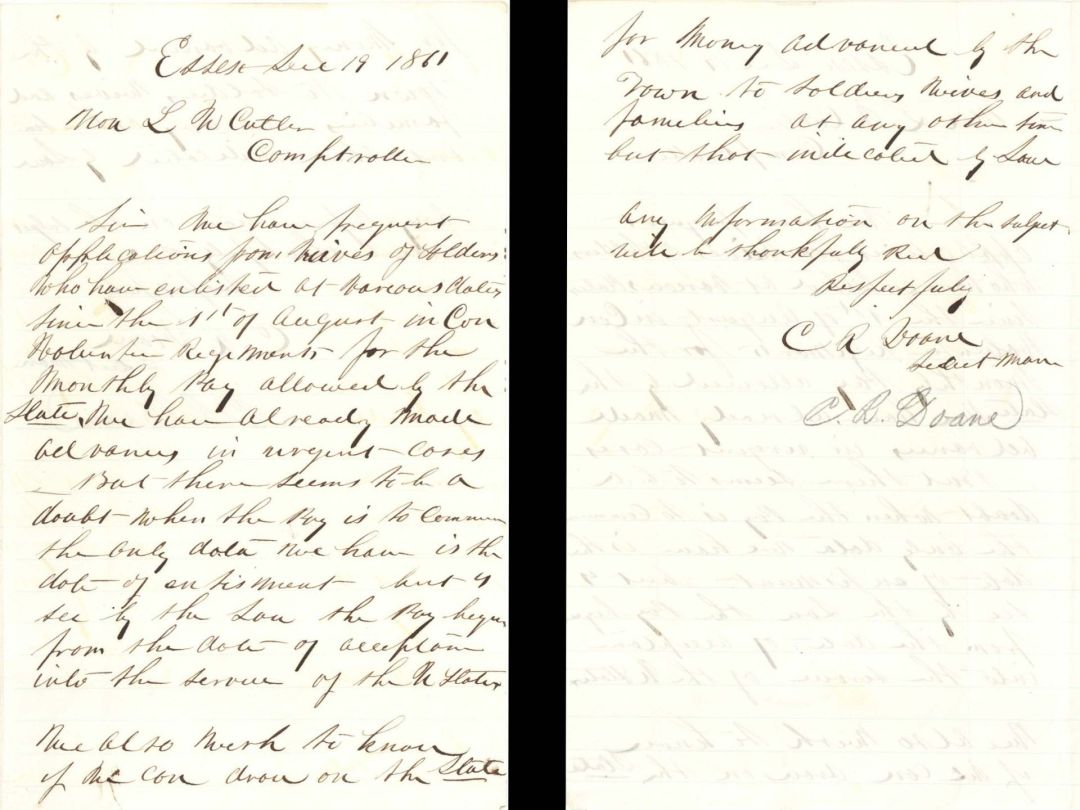 Essex Dec 19 1861
Hon L W Cutler
Comptroller
Sir We have frequent
applications from wives of soldiers
who have enlisted at various dates
since the 1st of August in Con
Volunteer Regiments for the
Monthly Pay allowed by the
State, We have already made
advances in urgent cases
But there seems to be a
doubt when the Pay is to commence
the only data we have is the
date of enlisment but
see by the Law the Pay begins
from the date of acceptance
into the service of the U States
We also wish to know
if we can draw on the State
for Money advanced by the
Town to soldiers Wives and
families at any other time
but that indicated by Law
Any information on the subject
will be thankfully Recd
Respectfully
C R Doane
Select Man
C. R. Doane